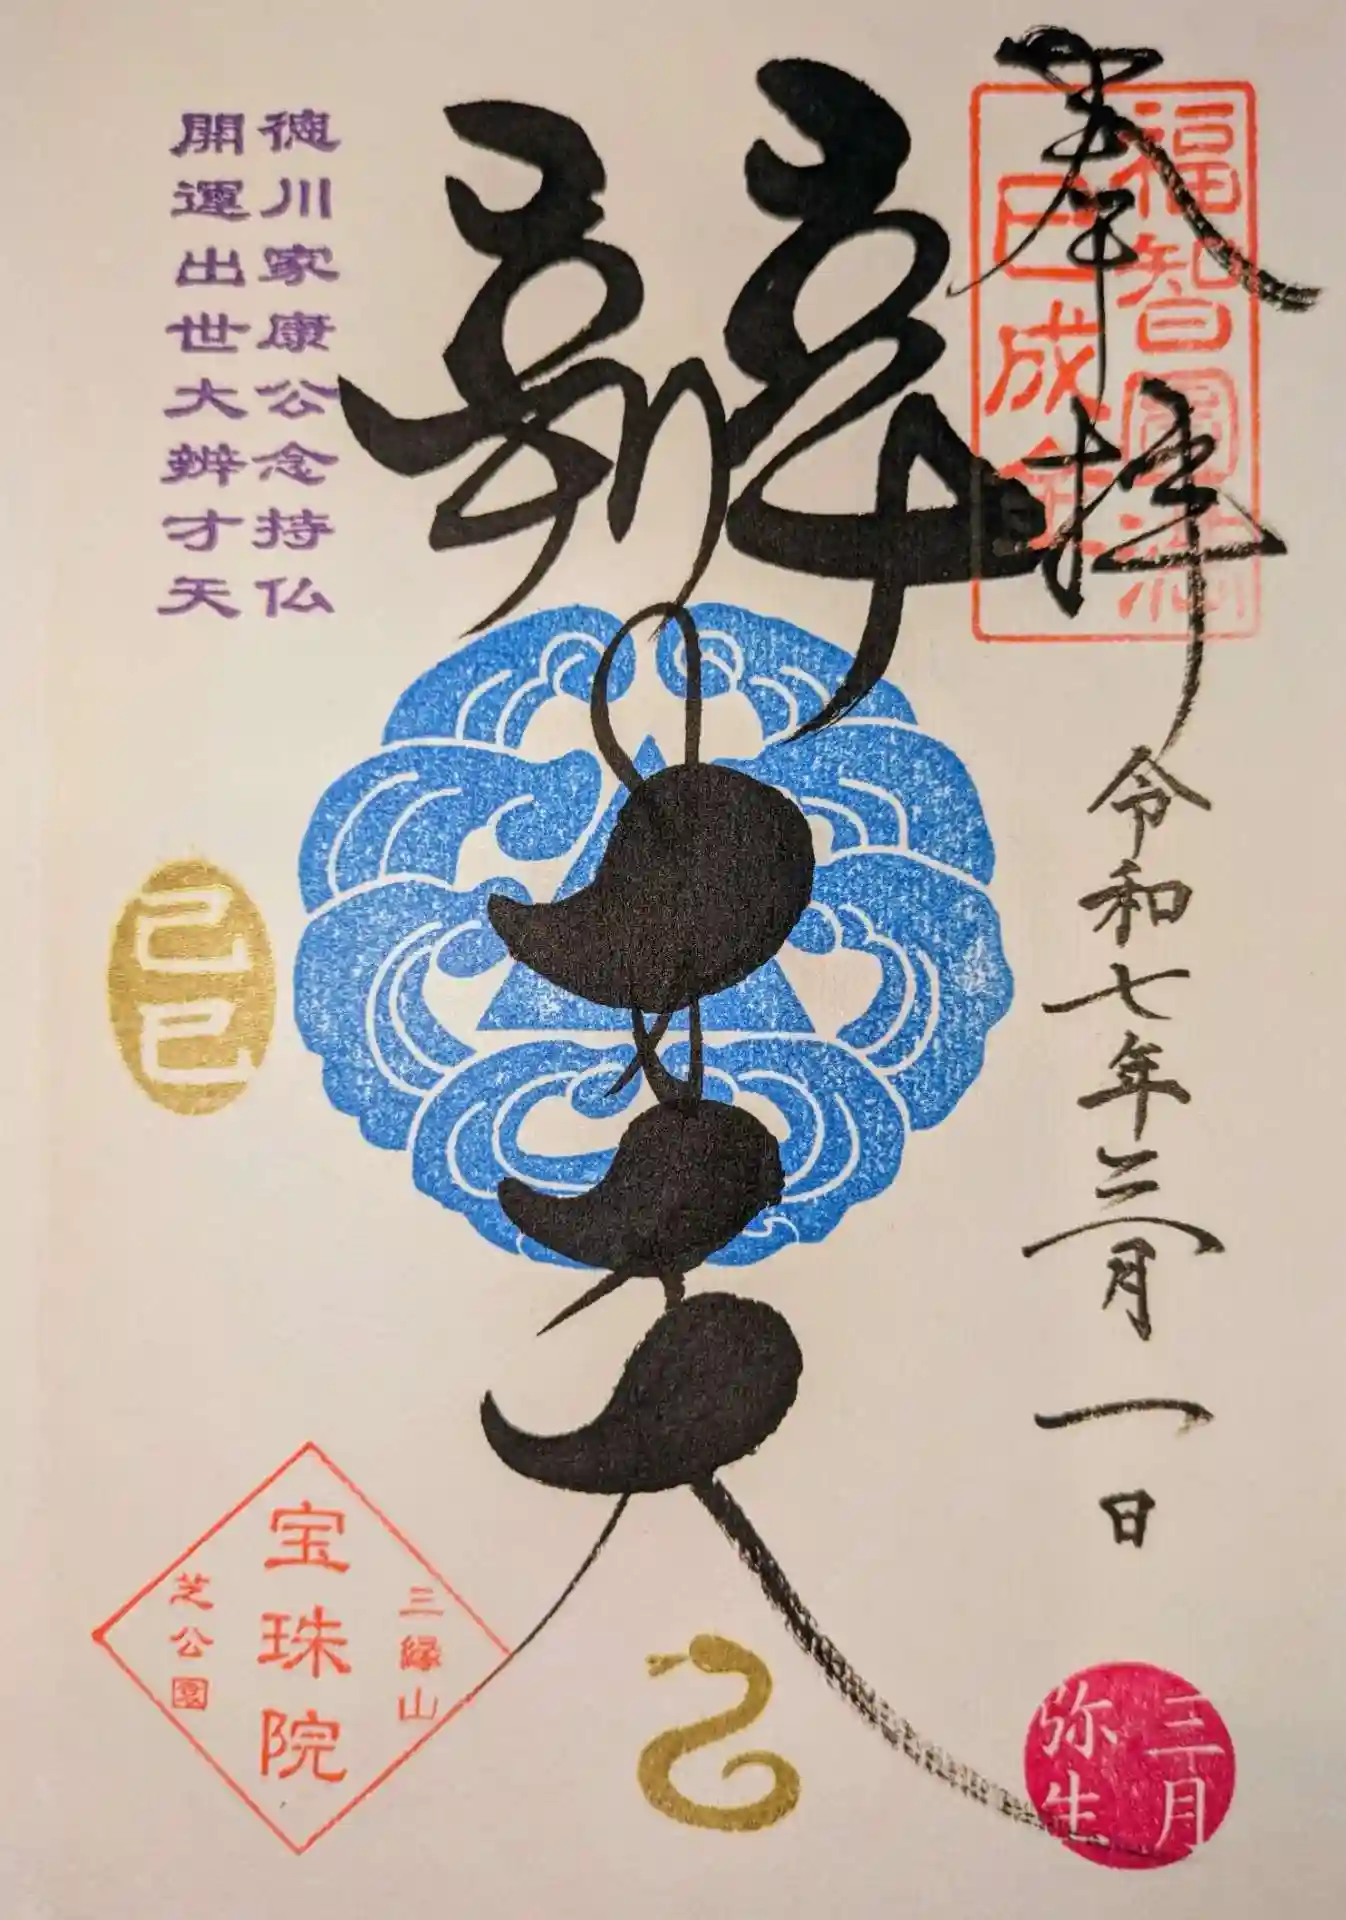 奉拝
福智圓満
巳成金
令和七年三月一日
辨才天
徳川家康公念持仏
開運出世大辨才天
己巳
三縁山
宝珠院
芝公園
三月
弥生